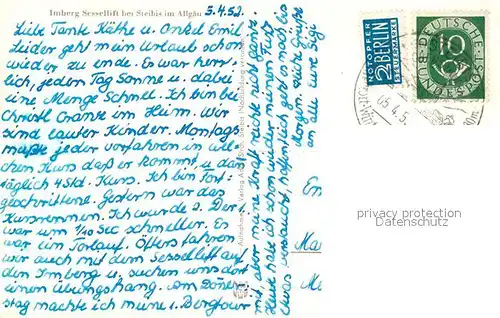 Imberg Sessellift bei Steibis im Allgäu
5.4.52.
Liebe Tante Käthe u. Onkel Emil
Leider geht mein Urlaub schon
wieder zu ende. Es war herr-
lich, jeden Tag Sonne u. dabei
eine Menge Schnee. Ich bin bei
Christl Cranz im Heim. Wir
sind lauter Kinder. Montags
mußte jeder vorfahren in wel-
chen Kurs daß er kommt u. dann
täglich 4 Std. Kurs. Ich bin Fort-
geschrittene. Gestern war das
Kursrennen. Ich wurde 2. Der 1.
war um 1/10 Sec schneller. Es
war ein Torlauf. Öfters fahren
wir auch mit dem Sessellift auf
den Imberg u. suchen uns dort
einen Übungshang. Am Donners
tag machte ich meine 1. Bergtour
mit, aber meine Kraft reichte nicht ganz
Heute habe ich schon wieder meinen Fuß
etwas verstaucht, hoffentlich geht es mog bis
morgen. Viele Grüße
an alle eure Sigi
NOTOPFER
2 BERLIN
STEUERMARKE
DEUTSCHE
BUNDESPOST
10
privacy protection
Datenschutz